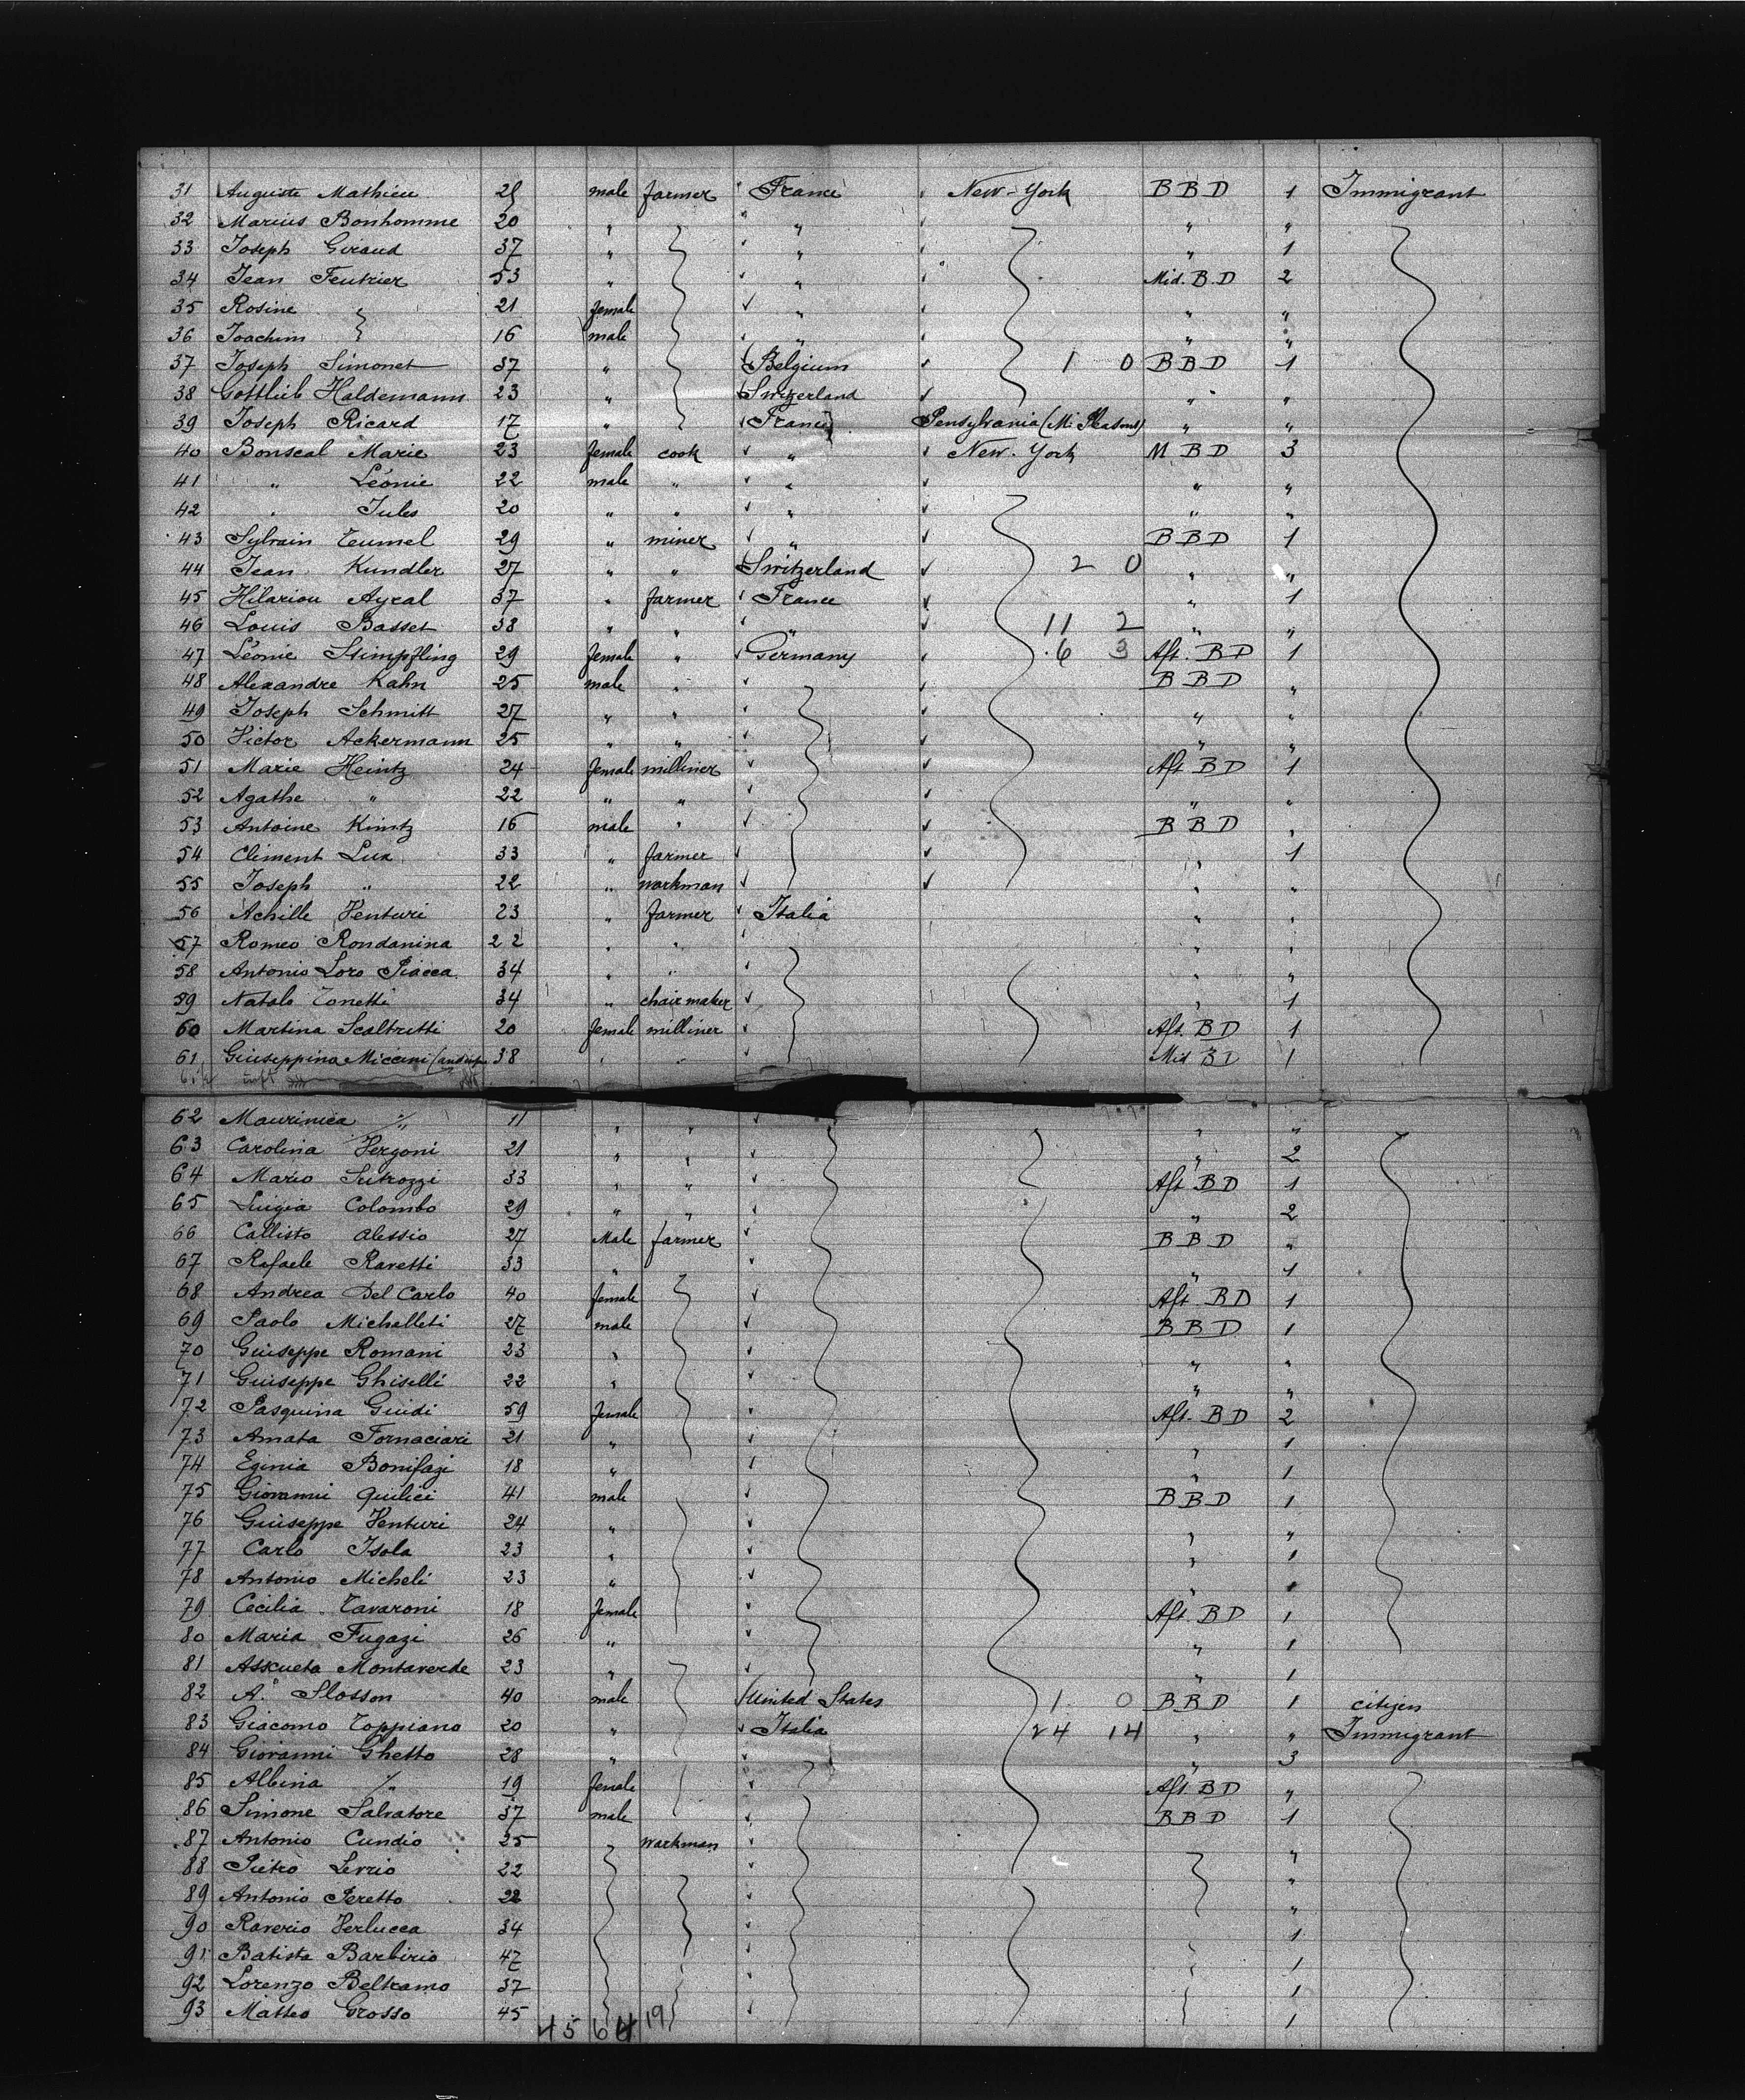 31 Auguste Mathieu 25 male farmer " France New-York BBD 1 Immigrant
32 Marius Bonhomme 20 " " " "
33 Joseph Giraud 37 " " " 1
34 Jean Feutrier 53 " " Mid. B.D 2
35 Rosine 21 female " " "
36 Joachim 16 male " " "
37 Joseph Simonet 37 " Belgium 1 0 BBD 1
38 Gottlieb Haldemann 23 " Switzerland " "
39 Joseph Ricard 17 " France Pensylvania " "
40 Bonseal Marie 23 female cook " New-York M BD 3
41 " Léonie 22 male " " " "
42 " Jules 20 " " " " "
43 Sylvain Teumel 29 " miner " BBD 1
44 Jean Kundler 27 " " Switzerland 2 0 " "
45 Hilarion Ayral 37 " farmer France " 1
46 Louis Basset 38 " " " 11 2 " "
47 Léonie Stimpfling 29 female " Germany 6 3 Aft. BD 1
48 Alexandre Kahn 25 male " BBD "
49 Joseph Schmitt 27 " " " "
50 Victor Ackermann 25 " " " "
51 Marie Heintz 24 female milliner Aft BD 1
52 Agathe " 22 " " " "
53 Antoine Kintz 16 male " BBD "
54 Clément Lux 33 " farmer " 1
55 Joseph " 22 " workman " "
56 Achille Venturi 23 " farmer Italia " "
57 Romeo Rondanina 22 " " " "
58 Antonio Loro Piacca 34 " " " "
59 Natale Tonetti 34 " chair maker " 1
60 Martina Scaltritti 20 female milliner Aft. BD 1
61 Giuseppina Miccini 38 " " Mid BD 1
62 Maurinica " 11 " " " "
63 Carolina Vergoni 21 " " " 2
64 Mario Sutrozzi 33 " " Aft BD 1
65 Luigia Colombo 29 " " " 2
66 Callisto Alessio 27 Male farmer BBD "
67 Rafaele Ravetti 33 " " 1
68 Andrea Del Carlo 40 female Aft. BD 1
69 Paolo Michelleti 27 male BBD 1
70 Giuseppe Romani 23 " " "
71 Giuseppe Ghiselli 22 " " "
72 Pasquina Guidi 59 female Aft. BD 2
73 Amata Fornaciari 21 " " 1
74 Eginia Bonifazi 18 " " 1
75 Giovanni Quilici 41 male BBD 1
76 Giuseppe Venturi 24 " " "
77 Carlo Isola 23 " " 1
78 Antonio Micheli 23 " " "
79 Cecilia Tavaroni 18 female Aft. BD 1
80 Maria Fugazi 26 " " 1
81 Assunta Montaverde 23 " " 1
82 A. Slosson 40 male United States 1 0 BBD 1 citizen
83 Giacomo Toppiano 20 " Italia 24 14 " " Immigrant
84 Giovanni Ghetto 28 " " 3
85 Albina " 19 female Aft BD "
86 Simone Salvatore 37 male BBD 1
87 Antonio Cundio 25 workman "
88 Pietro Levrio 22 "
89 Antonio Peretto 22 "
90 Raverio Verlucca 34 1
91 Batista Barbirio 47 1
92 Lorenzo Beltramo 37 1
93 Matteo Grosso 45 1
45 64 19